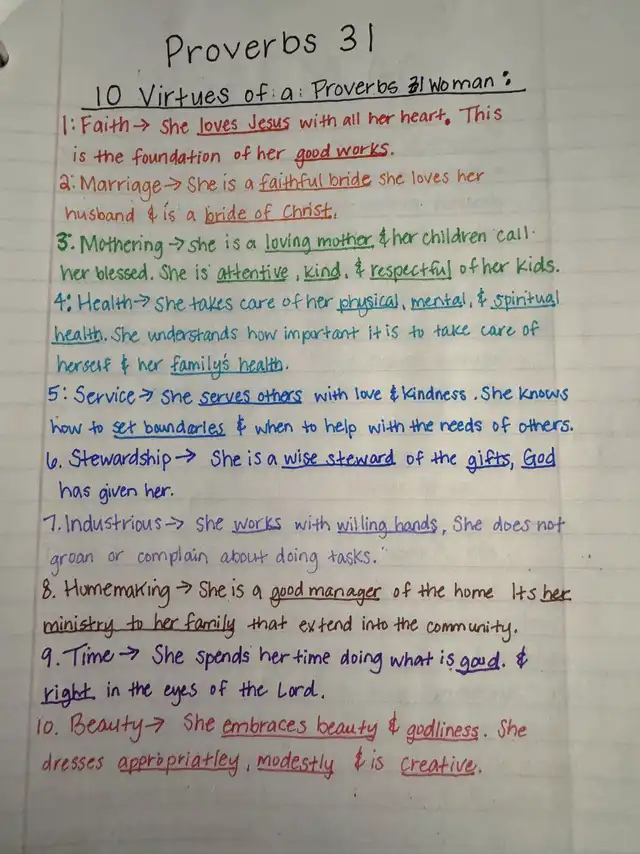 Proverbs 31
10 Virtues of a: Proverbs 31 Woman:
1: Faith → She loves Jesus with all her heart. This
is the foundation of her good works.
2: Marriage → She is a faithful bride she loves her
husband & is a bride of Christ.
3: Mothering → she is a loving mother & her children call
her blessed. She is attentive, kind, & respectful of her kids.
4: Health → She takes care of her physical, mental, & spiritual
health. She understands how important it is to take care of
herself & her family's health.
5: Service → She serves others with love & kindness. She knows
how to set boundaries & when to help with the needs of others.
6. Stewardship → She is a wise steward of the gifts, God
has given her.
7. Industrious → She works with willing hands, She does not
groan or complain about doing tasks."
8. Humemaking → She is a good manager of the home Its her
ministry to her family that extend into the community.
9. Time → She spends her time doing what is good. &
right in the eyes of the Lord.
10. Beauty → She embraces beauty & godliness. She
dresses appropriatley, modestly & is creative.